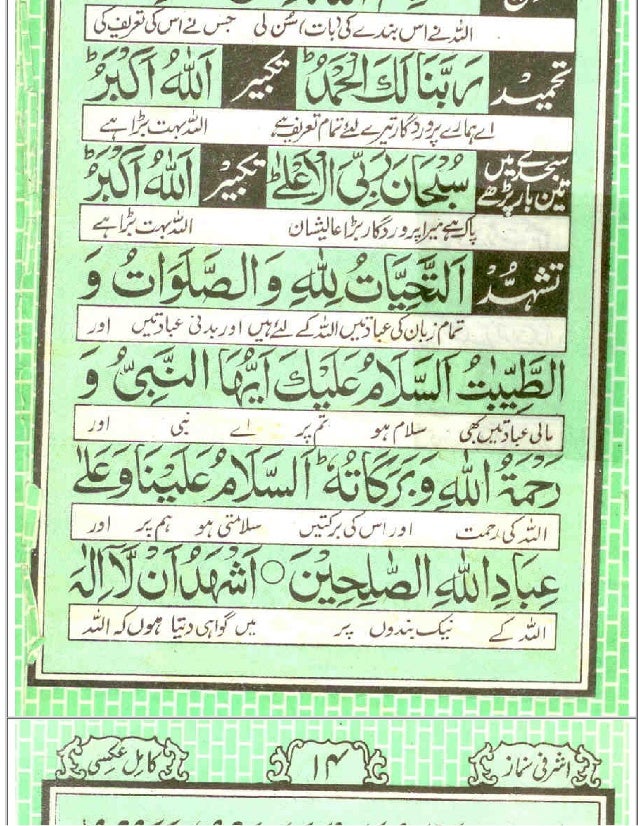 اللہ نے اس بندے کی (بات) سُن لی جس نے اس کی تعریف کی
تحمید رَبَّنَا لَكَ الْحَمْدُ ؕ تکبیر اَللّٰهُ اَكْبَرُ ؕ
اے ہمارے پروردگار تیرے لئے تمام تعریف ہے اللہ بہت بڑا ہے
سجدے میں تین بار پڑھے سُبْحَانَ رَبِّيَ الْاَعْلٰى ؕ تکبیر اَللّٰهُ اَكْبَرُ ؕ
پاک ہے میرا پروردگار بڑا عالیشان اللہ بہت بڑا ہے
تشہّد اَلتَّحِيَّاتُ لِلّٰهِ وَ الصَّلَوَاتُ وَ
تمام زبان کی عبادتیں اللہ کے لئے ہیں اور بدنی عبادتیں اور
الطَّيِّبٰتُ اَلسَّلَامُ عَلَيْكَ اَيُّهَا النَّبِيُّ وَ
مالی عبادتیں بھی سلام ہو تم پر اے نبی اور
رَحْمَةُ اللّٰهِ وَ بَرَكَاتُهٗ ؕ اَلسَّلَامُ عَلَيْنَا وَعَلٰى
اللہ کی رحمت اور اس کی برکتیں سلامتی ہو ہم پر اور
عِبَادِ اللّٰهِ الصّٰلِحِيْنَ ○ اَشْهَدُ اَنْ لَّا اِلٰهَ
اللہ کے نیک بندوں پر میں گواہی دیتا ہوں کہ اللہ
اشرفی نماز ۱۴ کامل عکسی